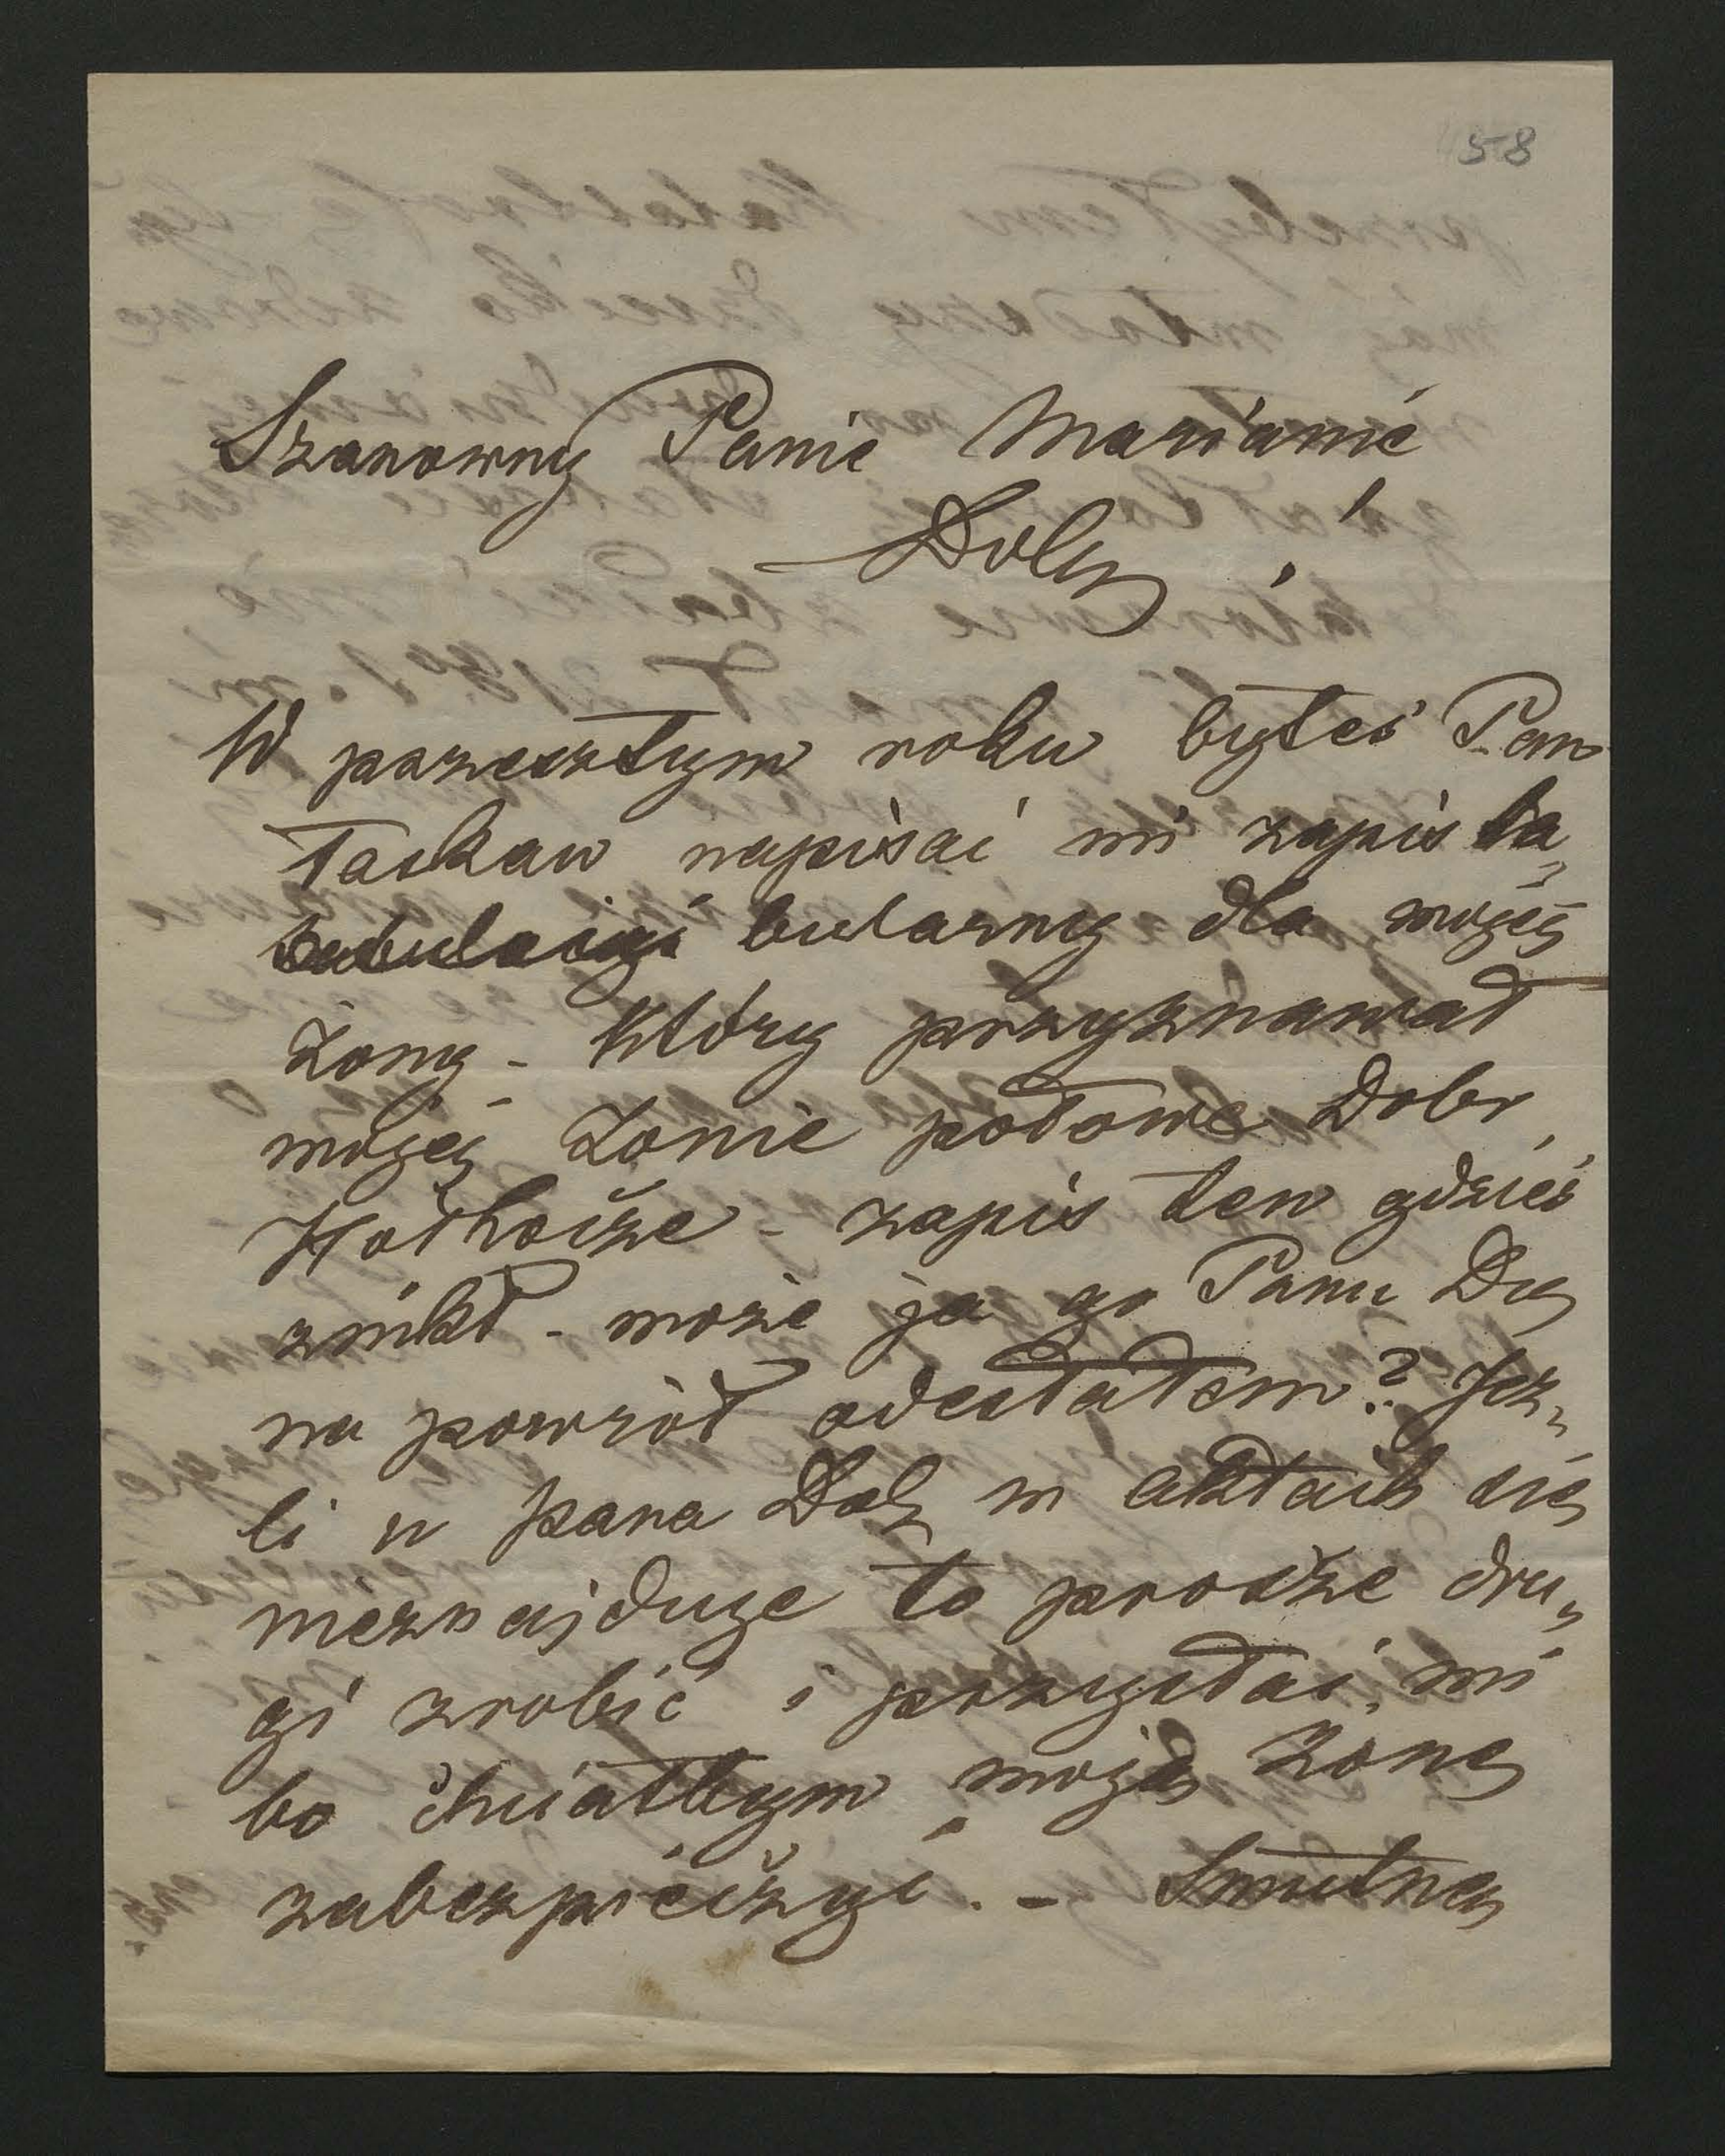 58
Szanowny Panie Marianie
Doby !
W przeszłym roku byłeś Pan
łaskaw napisać mi zapis ta„
bularny dla mojej
żony - który przyznawał
mojej żonie połowe Dobr
Hołhocze - zapis ten gdzieś
znikł - może ja go Panu Dą
na powrót odesłałem? Jez„
li u pana Dob w aktach się
nieznajduje to prosze dru„
gi zrobić i przysłać mi
bo chciałbym moją żonę
zabezpieczyć. - Smutną